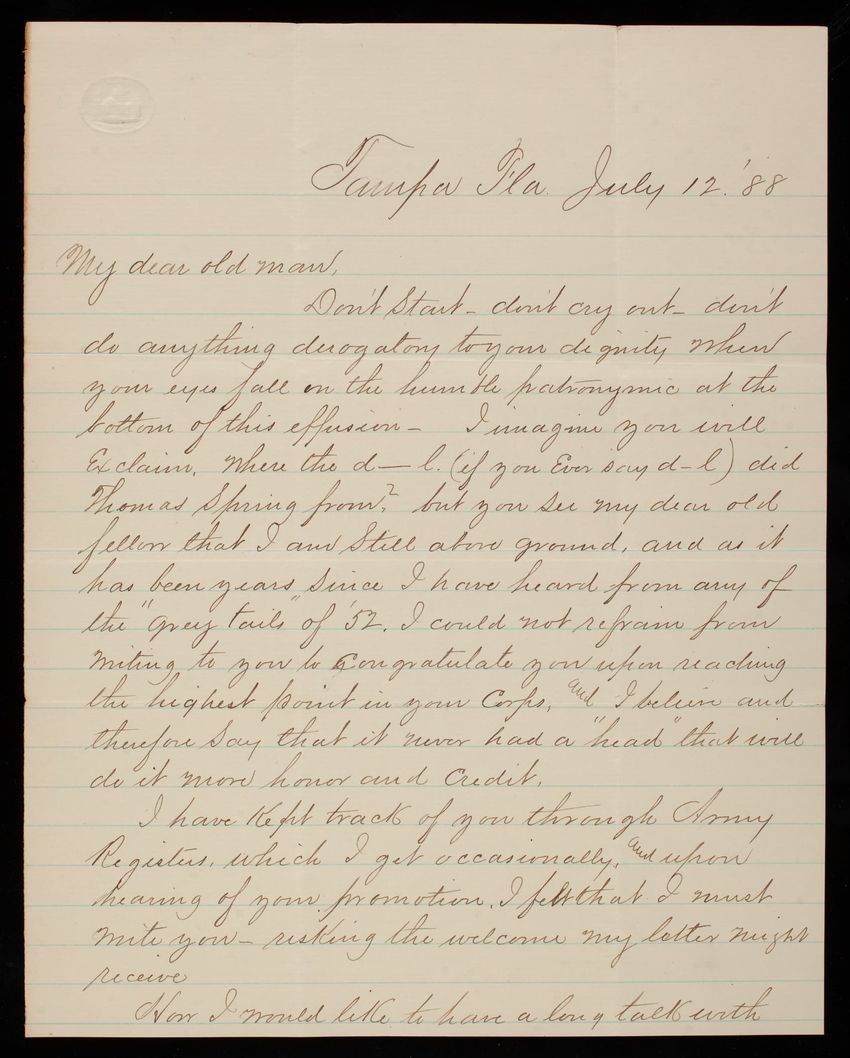 Tampa Fla. July 12. '88
My dear old man,
Don't start - don't cry out - don't
do anything derogatory to your dignity when
your eyes fall on the humble patronymic at the
bottom of this effusion - I imagine you will
Exclaim, where the d—l. (if you Ever say d-l) did
Thomas Spring from? but you see my dear old
fellow that I am still above ground, and as it
has been years since I have heard from any of
the "grey tails" of '52. I could not refrain from
writing to you to congratulate you upon reaching
the highest point in your Corps, and I believe and
therefore say that it never had a "head" that will
do it more honor and credit.
I have kept track of you through Army
Registers, which I get occasionally, and upon
hearing of your promotion, I felt that I must
write you - risking the welcome my letter might
receive
How I would like to have a long talk with